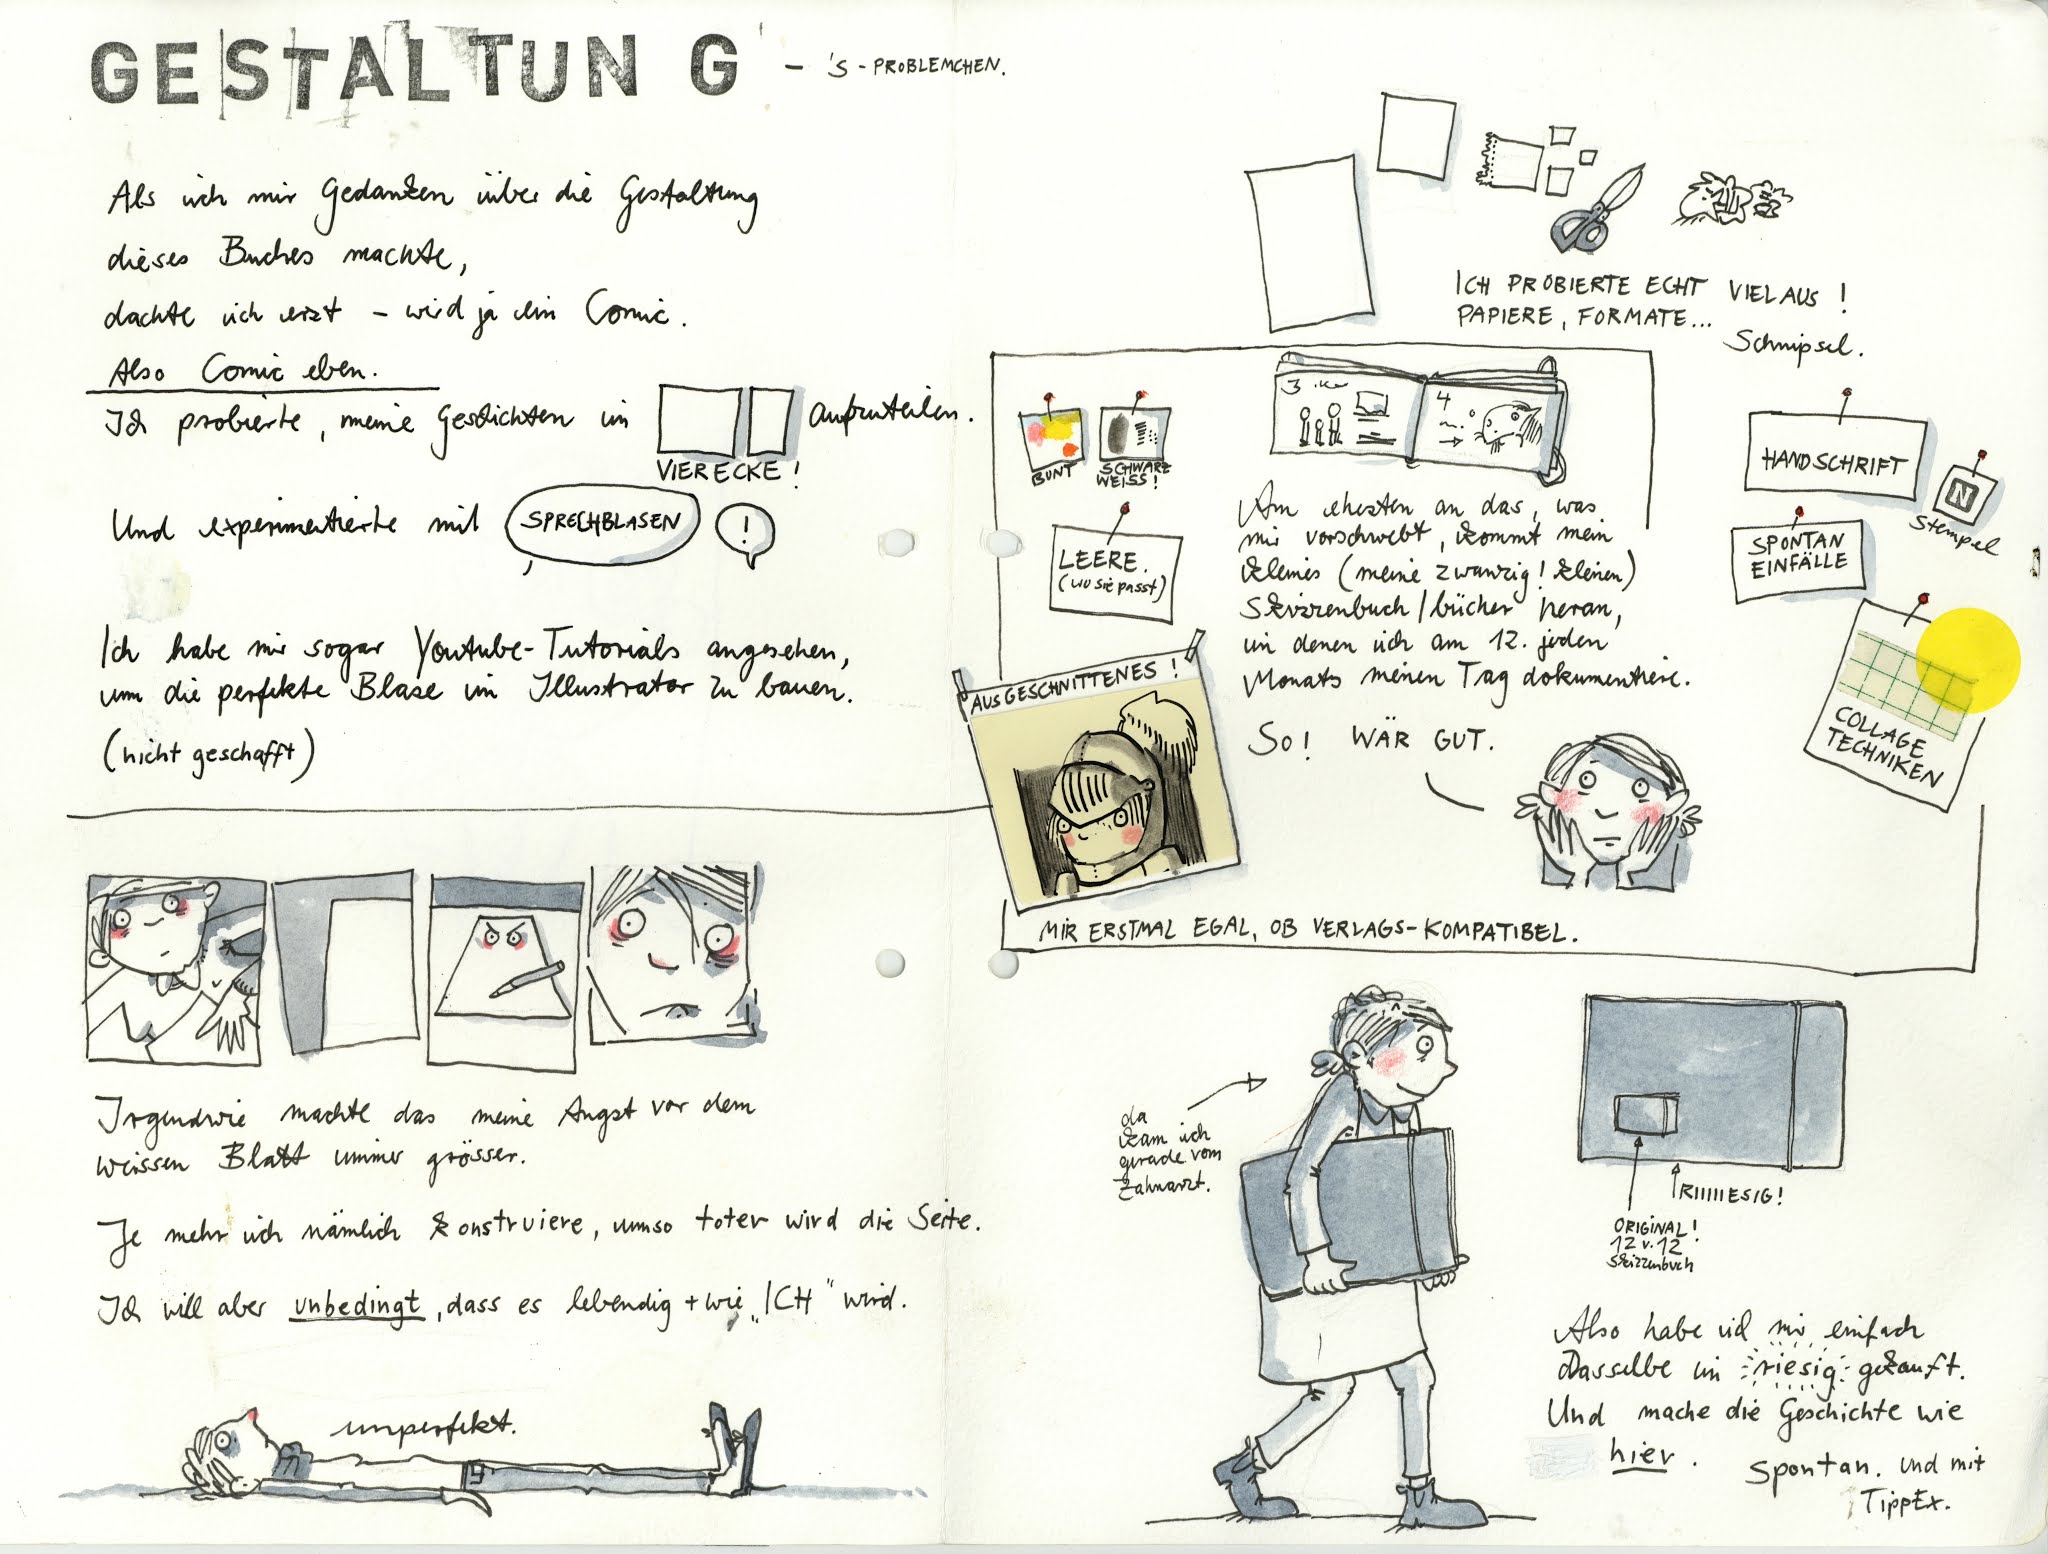 GESTALTUNG - 'S-PROBLEMCHEN.
Als ich mir Gedanken über die Gestaltung
dieses Buches machte,
dachte ich erst – wird ja ein Comic.
Also Comic eben.
Ich probierte, meine Geschichten in
aufzuteilen.
VIERECKE!
Und experimentierte mit
SPRECHBLASEN
!
Ich habe mir sogar Youtube-Tutorials angesehen,
um die perfekte Blase im Illustrator zu bauen.
(nicht geschafft)
Irgendwie machte das meine Angst vor dem
weissen Blatt immer grösser.
Je mehr ich nämlich konstruiere, umso toter wird die Seite.
Ich will aber unbedingt, dass es lebendig + wie „ICH" wird.
unperfekt.
ICH PROBIERTE ECHT VIEL AUS!
PAPIERE, FORMATE...
Schnipsel.
BUNT
SCHWARZ
WEISS!
LEERE.
(wo sie passt)
AUSGESCHNITTENES!
3
4
Am ehesten an das, was
mir vorschwebt, kommt mein
kleines (meine zwanzig! kleinen)
Skizzenbuch/bücher heran,
in denen ich am 12. jeden
Monats meinen Tag dokumentiere.
SO! WÄR GUT.
HANDSCHRIFT
N
Stempel
SPONTAN
EINFÄLLE
COLLAGE
TECHNIKEN
MIR ERSTMAL EGAL, OB VERLAGS-KOMPATIBEL.
da
kam ich
gerade vom
Zahnarzt.
RIIIIIESIG!
ORIGINAL!
12 v. 12
Skizzenbuch
Also habe ich mir einfach
Dasselbe in riesig gekauft.
Und mache die Geschichte wie
hier.
Spontan. Und mit
TippEx.